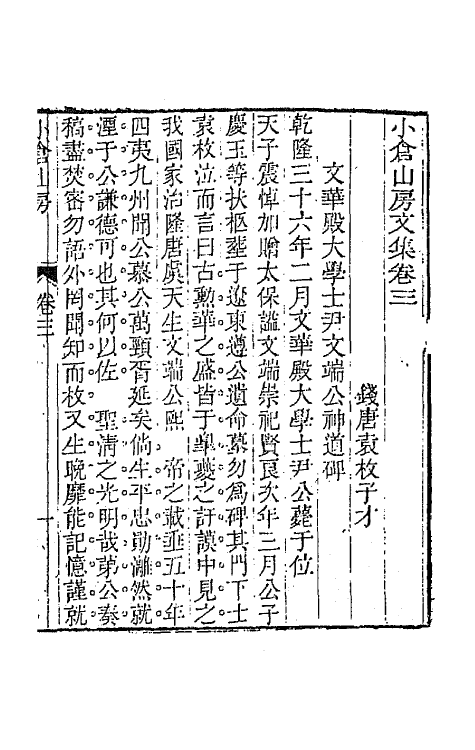 小倉山房文集卷三
錢唐袁枚子才
文華殿大學士尹文端公神道碑
乾隆三十六年二月文華殿大學士尹公薨于位
天子震悼加贈太保諡文端崇祀賢良次年三月公子
慶玉等扶柩塟于遼東遵公遺命墓勿爲碑其門下士
袁枚泣而言曰古勳華之盛皆于臯夔之訏謨中見之
我國家治隆唐虞天生文端公熙 帝之載垂五十年
四夷九州聞公慕公萬頸胥延矣倘生平忠勛灕然就
湮于公謙德可也其何以佐 聖清之光明哉第公奏
稿盡焚密勿語外罔聞知而枚又生晚靡能記憶謹就
小倉山房 卷三 一